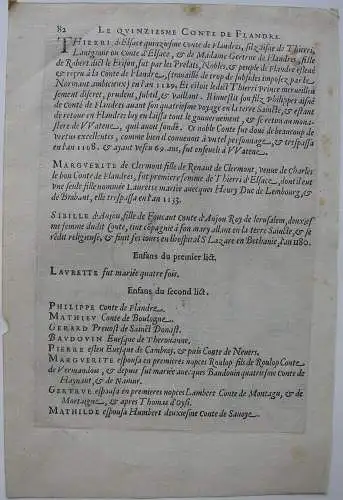 82 LE QVINZIESME CONTE DE FLANDRE.
THIERI d'Elsace quinziesme conte de Flandres, filz aisne de Thieri,
Lantgrave ou Conte d'Elsace, & de Madame Gertrude de Flandres, fille
de Robert dict le Frison, fut par les Prelatz, Nobles, & peuple de Flandre esleué
& reçeu à la Conté de Flandre, (travaillé de trop de subsides imposez par le
Normant ambicieux) en l'an 1129. Et estoit ledict Thieri Prince merveilleu
sement discret, prudent, subtil, & vaillant. Il investit son filz Philippe aisné
de Conté de Flandres avant son quatriesme voyage en la terre Saincte, & estant
de retour en Flandres luy en laissa tout le gouvernement, & se retira au mona-
stere de VVatene, qu'il avoit fondé. Ce noble Conte fut doué de beaucoup de
vertus excellentes, comme bien il convenoit à un tel personnage, & trespassa
en l'an 1168. & ayant vescu 69. ans, fut enseveli à VVatene.
MARGVERITE de Clermont fille de Renaut de Clermont, vesue de Charles
le bon Conte de Flandres, fut premiere femme de Thieri d'Elsace, dont il eut
une seule fille nommée Laurette mariée avecques Henry Duc de Lembourg, &
de Brabant, elle trespassa en l'an 1133.
SIBILLE d'Anjou, fille de Foucaut conte d'Anjou Roy de Jerusalem, deuxies
me femme dudit Conte, tint compagnie à son mary allant en la terre Saincte, & se
rédit religieuse, & finit ses jours en l'hospital S. Lazare en Bethanie, l'an 1180.
Enfans du premier lict.
LAVRETTE fut mariée quatre fois.
Enfans du second lict.
PHILIPPE conte de Flandre.
MATHIEV Conte de Boulogne.
GERARD Prevost de Sainct Donast.
BAVDOVIN Evesque de Therouanne.
PIERRE esleu Evesque de Cambray, & puis Conte de Nevers.
MARGVERITE espousa en premieres nopces Roulop fils de Roulop Conte
de Vermandou, & depuis fut mariée avecques Baudouin quatriesme conte de
Haynaut, & de Namur.
GERTRVE espousa en premieres nopces Lambert Conte de Montagu, & de
Mortaigne, & apres Thomas d'Oysi.
MATHILDE espousa Humbert deuxiesme conte de Savoye.